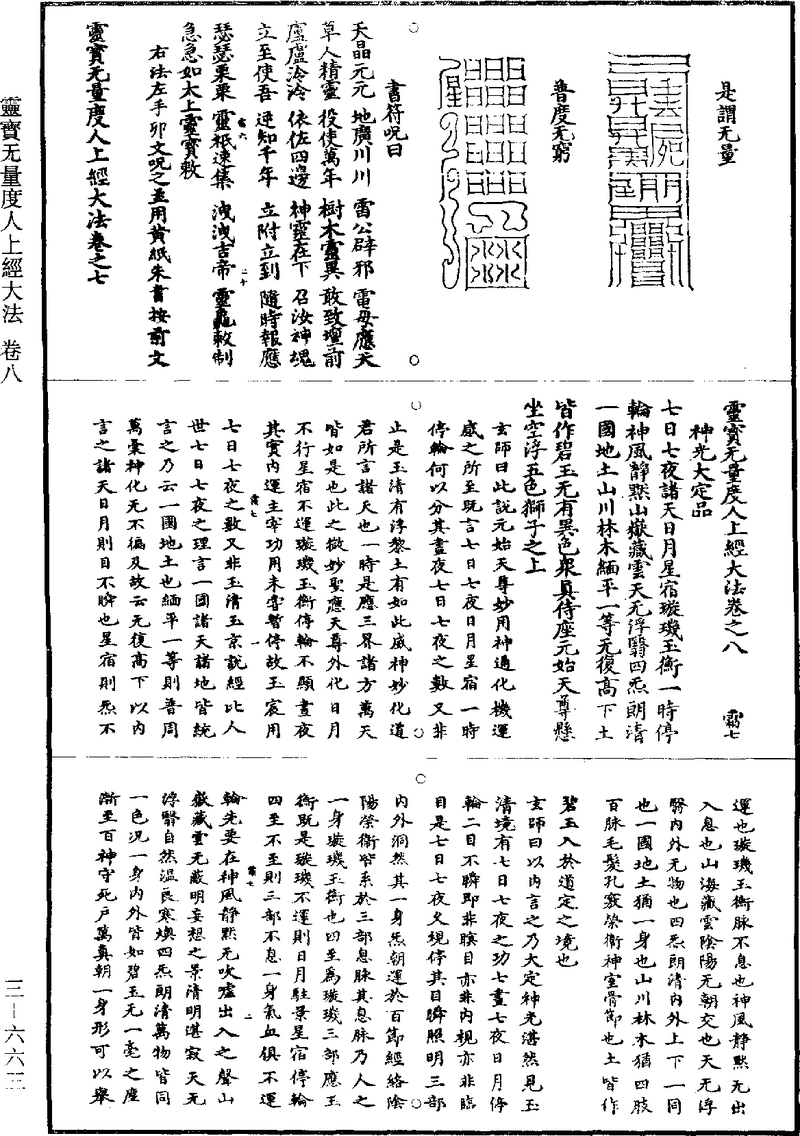 是謂无量
普度无窮
書符呪曰
天晶元元　地廣川川　雷公辟邪　電母應天
草人精靈　役使萬年　樹木靈異　敢致壇前
廬廬泠泠　依佐四邊　神靈在下　召汝神魂
立至使吾　逆知千年　立附立到　隨時報應
瑟瑟栗栗　靈祇速集　洩洩吉帝　靈龜敕制
急急如太上靈寶敕
右法左手卯文呪之並用黄紙朱書按前文
靈寶无量度人上經大法卷之七
靈寶无量度人上經大法卷之八　霜七
神光大定品
七日七夜諸天日月星宿璇璣玉衡一時停
輪神風靜默山嶽藏雲天无浮翳四炁朗清
一國地土山川林木緬平一等无復高下土
皆作碧玉无有異色衆真侍座元始天尊懸
坐空浮五色獅子之上
玄師曰此説元始天尊妙用神通化機運
威之所至既言七日七夜日月星宿一時
停輪何以分其晝夜七日七夜之數又非
止是玉清有浮黎土有如此威神妙化道
君所言諸天也一時是應三界諸方萬天
皆如是也此之微妙聖應天尊外化日月
不行星宿不運璇璣玉衡停輪不顯晝夜
其實内運主宰功用未嘗暫停故玉宸用
七日七夜之數又非玉清玉京説經比人
世七日七夜之理言一國諸天諸地皆統
言之乃云一國地土也緬平一等則普周
萬彙神化无不徧及故云无復高下以内
言之諸天日月則目不瞬也星宿則炁不
運也璇璣玉衡脉不息也神風靜默无出
入息也山海藏雲陰陽无朝交也天无浮
翳内外无物也四炁朗清内外上下一同
也一國地土猶一身也山川林木猶四肢
百脉毛髮孔竅榮衛神室骨節也土皆作
碧玉入於道定之境也
玄師曰以内言之乃大定神光湛然見玉
清境有七日七夜之功七晝七夜日月停
輪二目不瞬即非瞑目亦非内視亦非臨
目是七日七夜久視停其目瞬照明三部
内外洞然其一身炁朝運於百節經絡陰
陽榮衛皆系於三部息脉其息脉乃人之
一身璇璣玉衡也四至爲璇璣三部應玉
衡既是璇璣不運則日月駐景星宿停輪
四至不至則三部不息一身氣血俱不運
輪先要在神風靜默无吹噓出入之聲山
嶽藏雲无蔽明妄想之景清明湛寂天无
浮翳自然温良寒燠四炁朗清萬物皆同
一色況一身内外皆如碧玉无一毫之塵
漸至百神守死户萬真朝一身形可以舉
靈寶无量度人上經大法　卷八
三－六六三